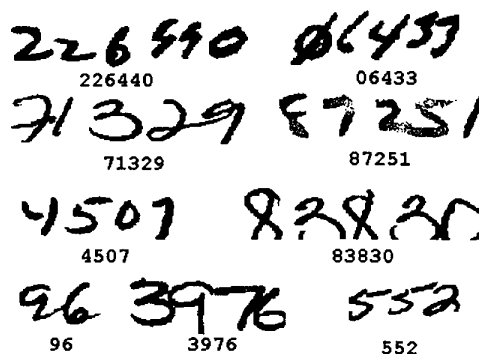 226440 06433
226440 06433
71329 87251
71329 87251
4507 83830
4507 83830
96 3976 552
96 3976 552